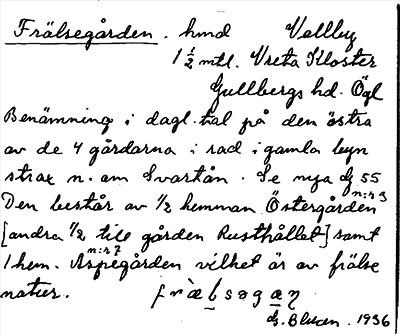 Frälsegården. hmd Vallby
1 ½ mtl. Vreta Kloster
Gullbergs hd. Ögl
Benämning i dagl. tal på den östra
av de 4 gårdarna i rad i gamla byn
strax n. om Svartån. Se nya
Den består av ½ hemman Östergården n:r 3
[andra ½ till gården Rusthållet] samt
1 hem. Aspegården n:r 7 vilket är av frälse
natur. frælsogaɳ
1936